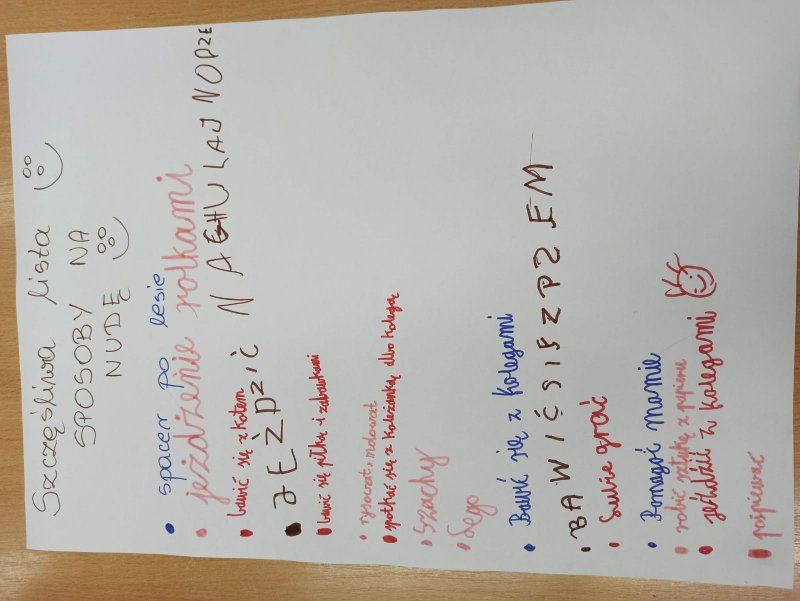 Szczęśliwa lista
SPOSOBY NA
NUDĘ
• spacer po lesie
• jeżdżenie rolkami
• bawić się z kotem
• JEŹDZIĆ NA CHULAJNODZE
• bawić się piłką i zabawkami
• rysować, malować
• spotkać się z koleżanką albo kolegą
• szachy
• lego
• Bawić się z kolegami
• BAWIĆ SIĘ Z PZEM
• Subie grać
• Pomagać mamie
• robić sztukę z papieru
• jeździć z kolegami
• pośpiewać